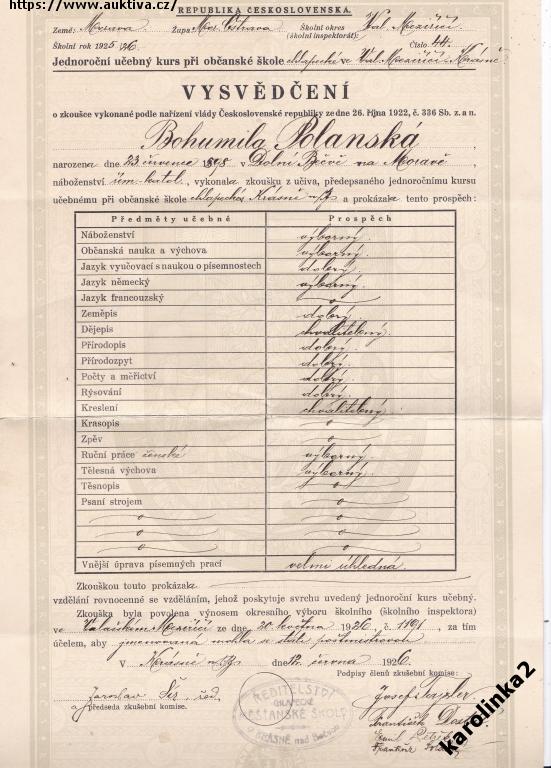 https://www.auktiva.cz/
REPUBLIKA ČESKOSLOVENSKÁ.
Země: Morava Župa Mor. Ostrava Školní okres (školní inspektorát): Val. Meziříčí
Školní rok 1925/26 Číslo 44.
Jednoroční učebný kurs při občanské škole chlapecké ve Val. Meziříčí-Krásně
VYSVĚDČENÍ
o zkoušce vykonané podle nařízení vlády Československé republiky ze dne 26. října 1922, č. 336 Sb. z. a n.
Bohumila Polanská,
narozena dne 23 července 1898 v Dolní Bečvě na Moravě,
náboženství řím. katol., vykonala zkoušku z učiva, předepsaného jednoročnímu kursu
učebnému při občanské škole chlapecké v Krásně n/B a prokázala tento prospěch:
Předměty učebné Prospěch
Náboženství výborný.
Občanská nauka a výchova výborný.
Jazyk vyučovací s naukou o písemnostech dobrý.
Jazyk německý výborný.
Jazyk francouzský o
Zeměpis dobrý.
Dějepis chvalitebný.
Přírodopis dobrý.
Přírodozpyt dobrý.
Počty a měřictví dobrý.
Rýsování dobrý.
Kreslení chvalitebný.
Krasopis o
Zpěv o
Ruční práce ženské výborný.
Tělesná výchova výborný.
Těsnopis o
Psaní strojem o
o o
o o
o o
Vnější úprava písemných prací velmi úhledná.
Zkouškou touto prokázala
vzdělání rovnocenné se vzděláním, jehož poskytuje svrchu uvedený jednoroční kurs učebný.
Zkouška byla povolena výnosem okresního výboru školního (školního inspektora)
ve Valašském Meziříčí ze dne 20. května 1926, č. 1191, za tím
účelem, aby jmenovaná mohla se státi postmistrovou
V Krásně n/B dne 12. června 1926.
Podpisy členů zkušební komise:
Jaroslav řed.
předseda zkušební komise.
ŘEDITELSTVÍ
CHLAPECKÉ
MĚŠŤANSKÉ ŠKOLY
v KRÁSNĚ nad Bečvou
Josef
František
Emil
František
karolinka2